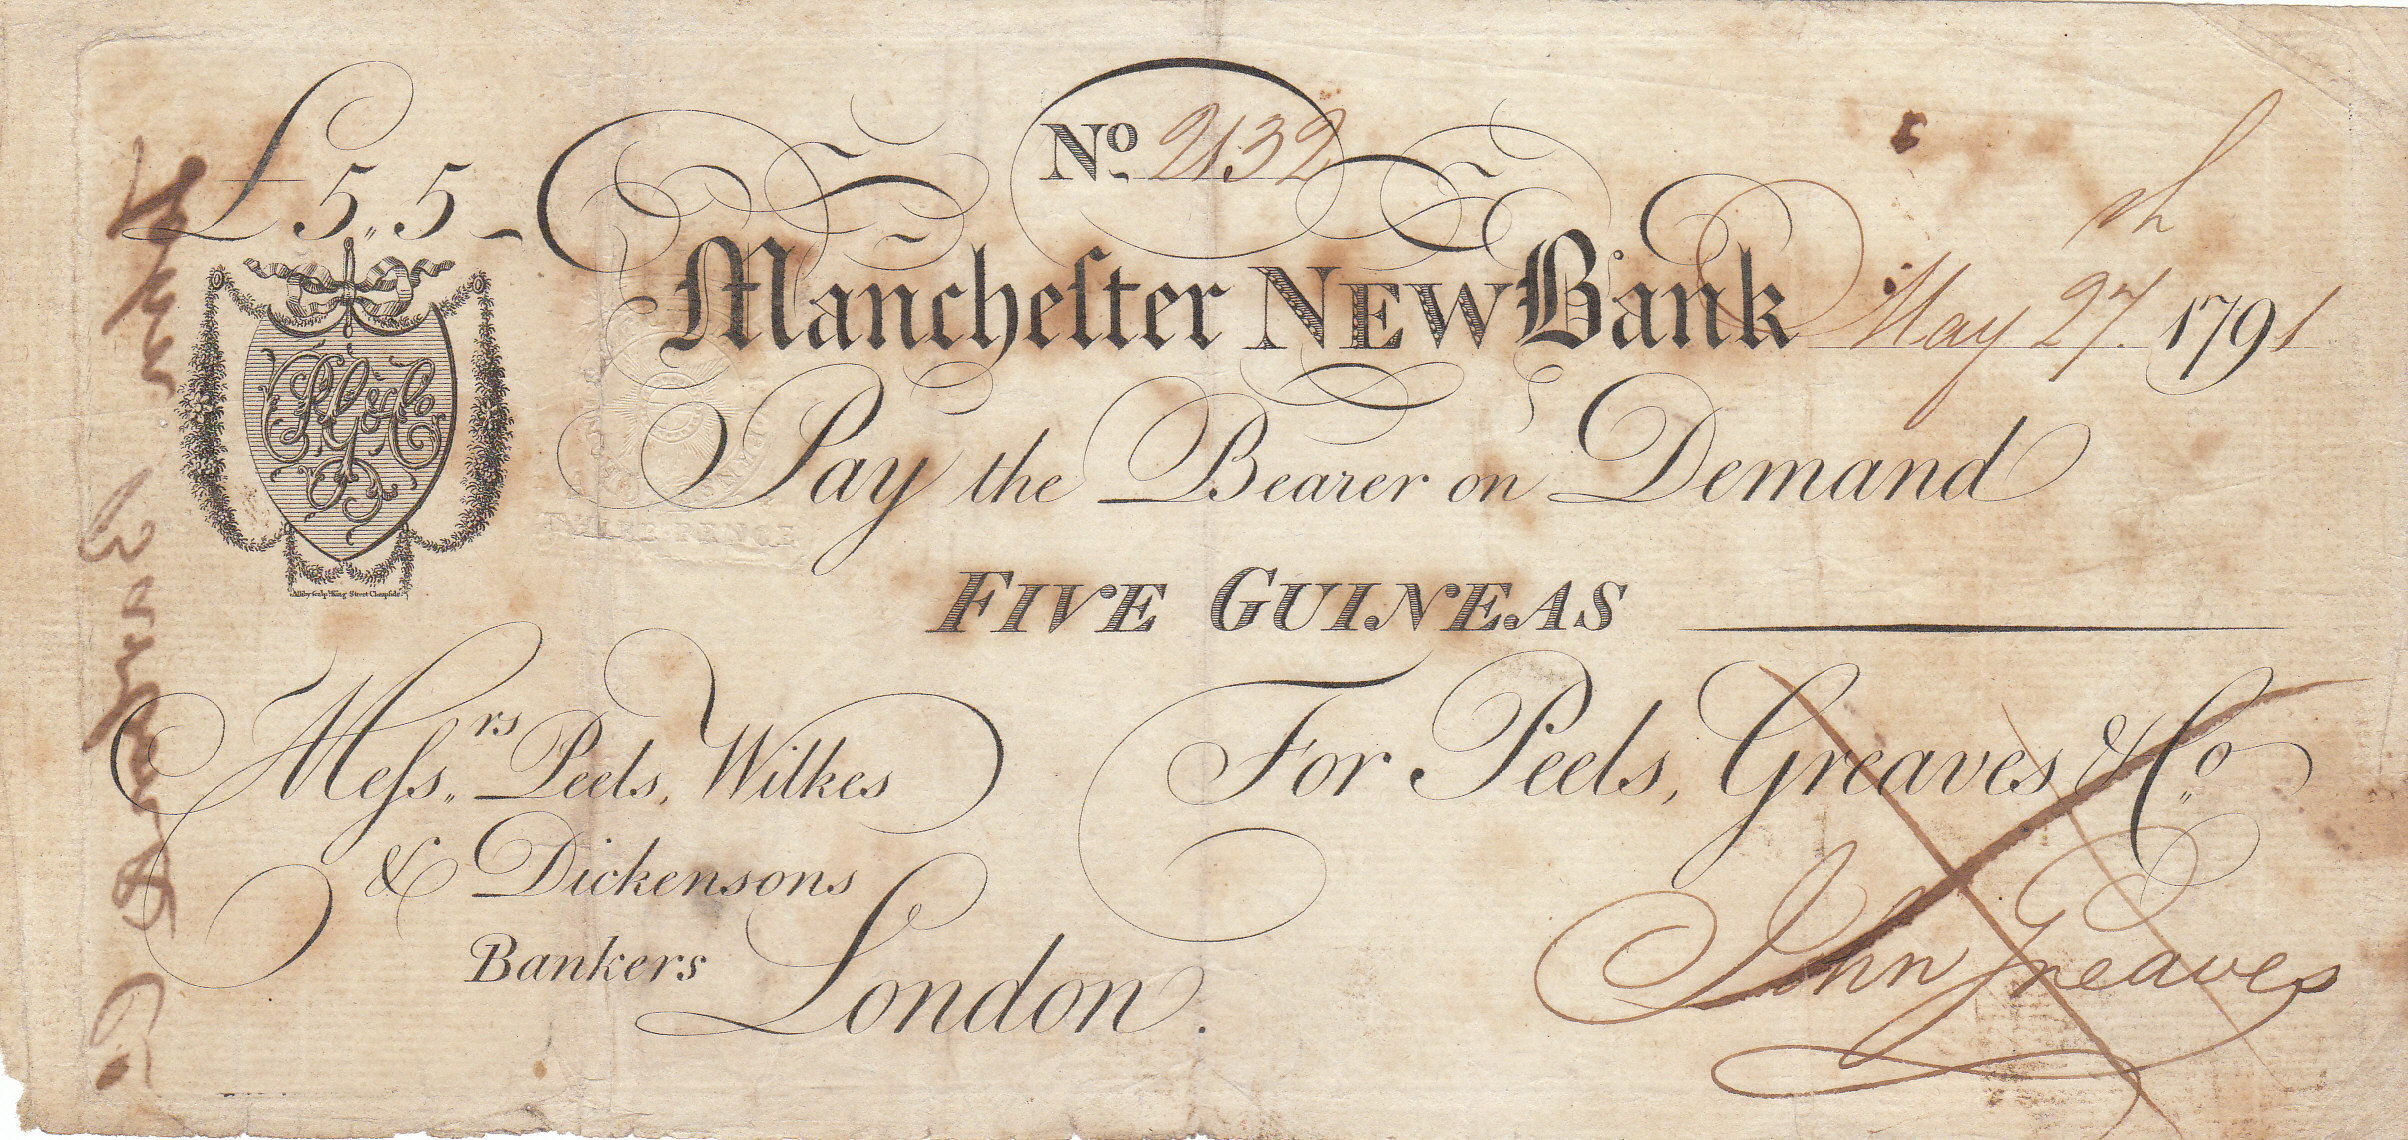 £5,,5-
No. 2132
Mancheſter NEW Bank May 27th. 1791
Pay the Bearer on Demand
FIVE GUINEAS
Meſs,,rs Peels, Wilkes
& Dickensons
Bankers London.
For Peels, Greaves & Co,,
John Greaves
PG&Co
THREE PENCE